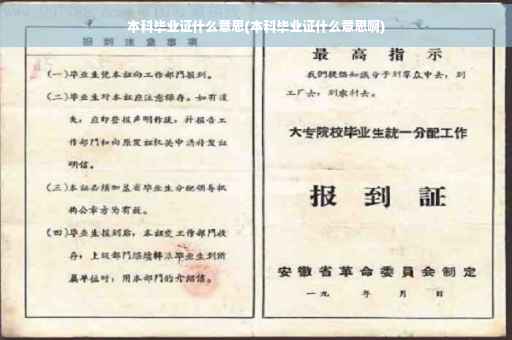 本科毕业证什么意思(本科毕业证什么意思啊)
报到注意事项
(一)毕业生凭本证向工作部门报到。
(二)毕业生对本证应注意保存。如有遗
失,应即登报声明作废,并报告工
作部门和向原发证机关申请补发证
明信。
(三)本证必须加盖省毕业生分配领导机
构公章方为有效。
(四)毕业生报到后,本证交工作部门收
存;上级部门继续转派毕业生到所
属单位时,用本部门的介绍信。
最高指示
我们提倡知识分子到群众中去,到
工厂去,到农村去。
大专院校毕业生統一分配工作
报到証
安徽省革命委員会制定
一九 年 月 日